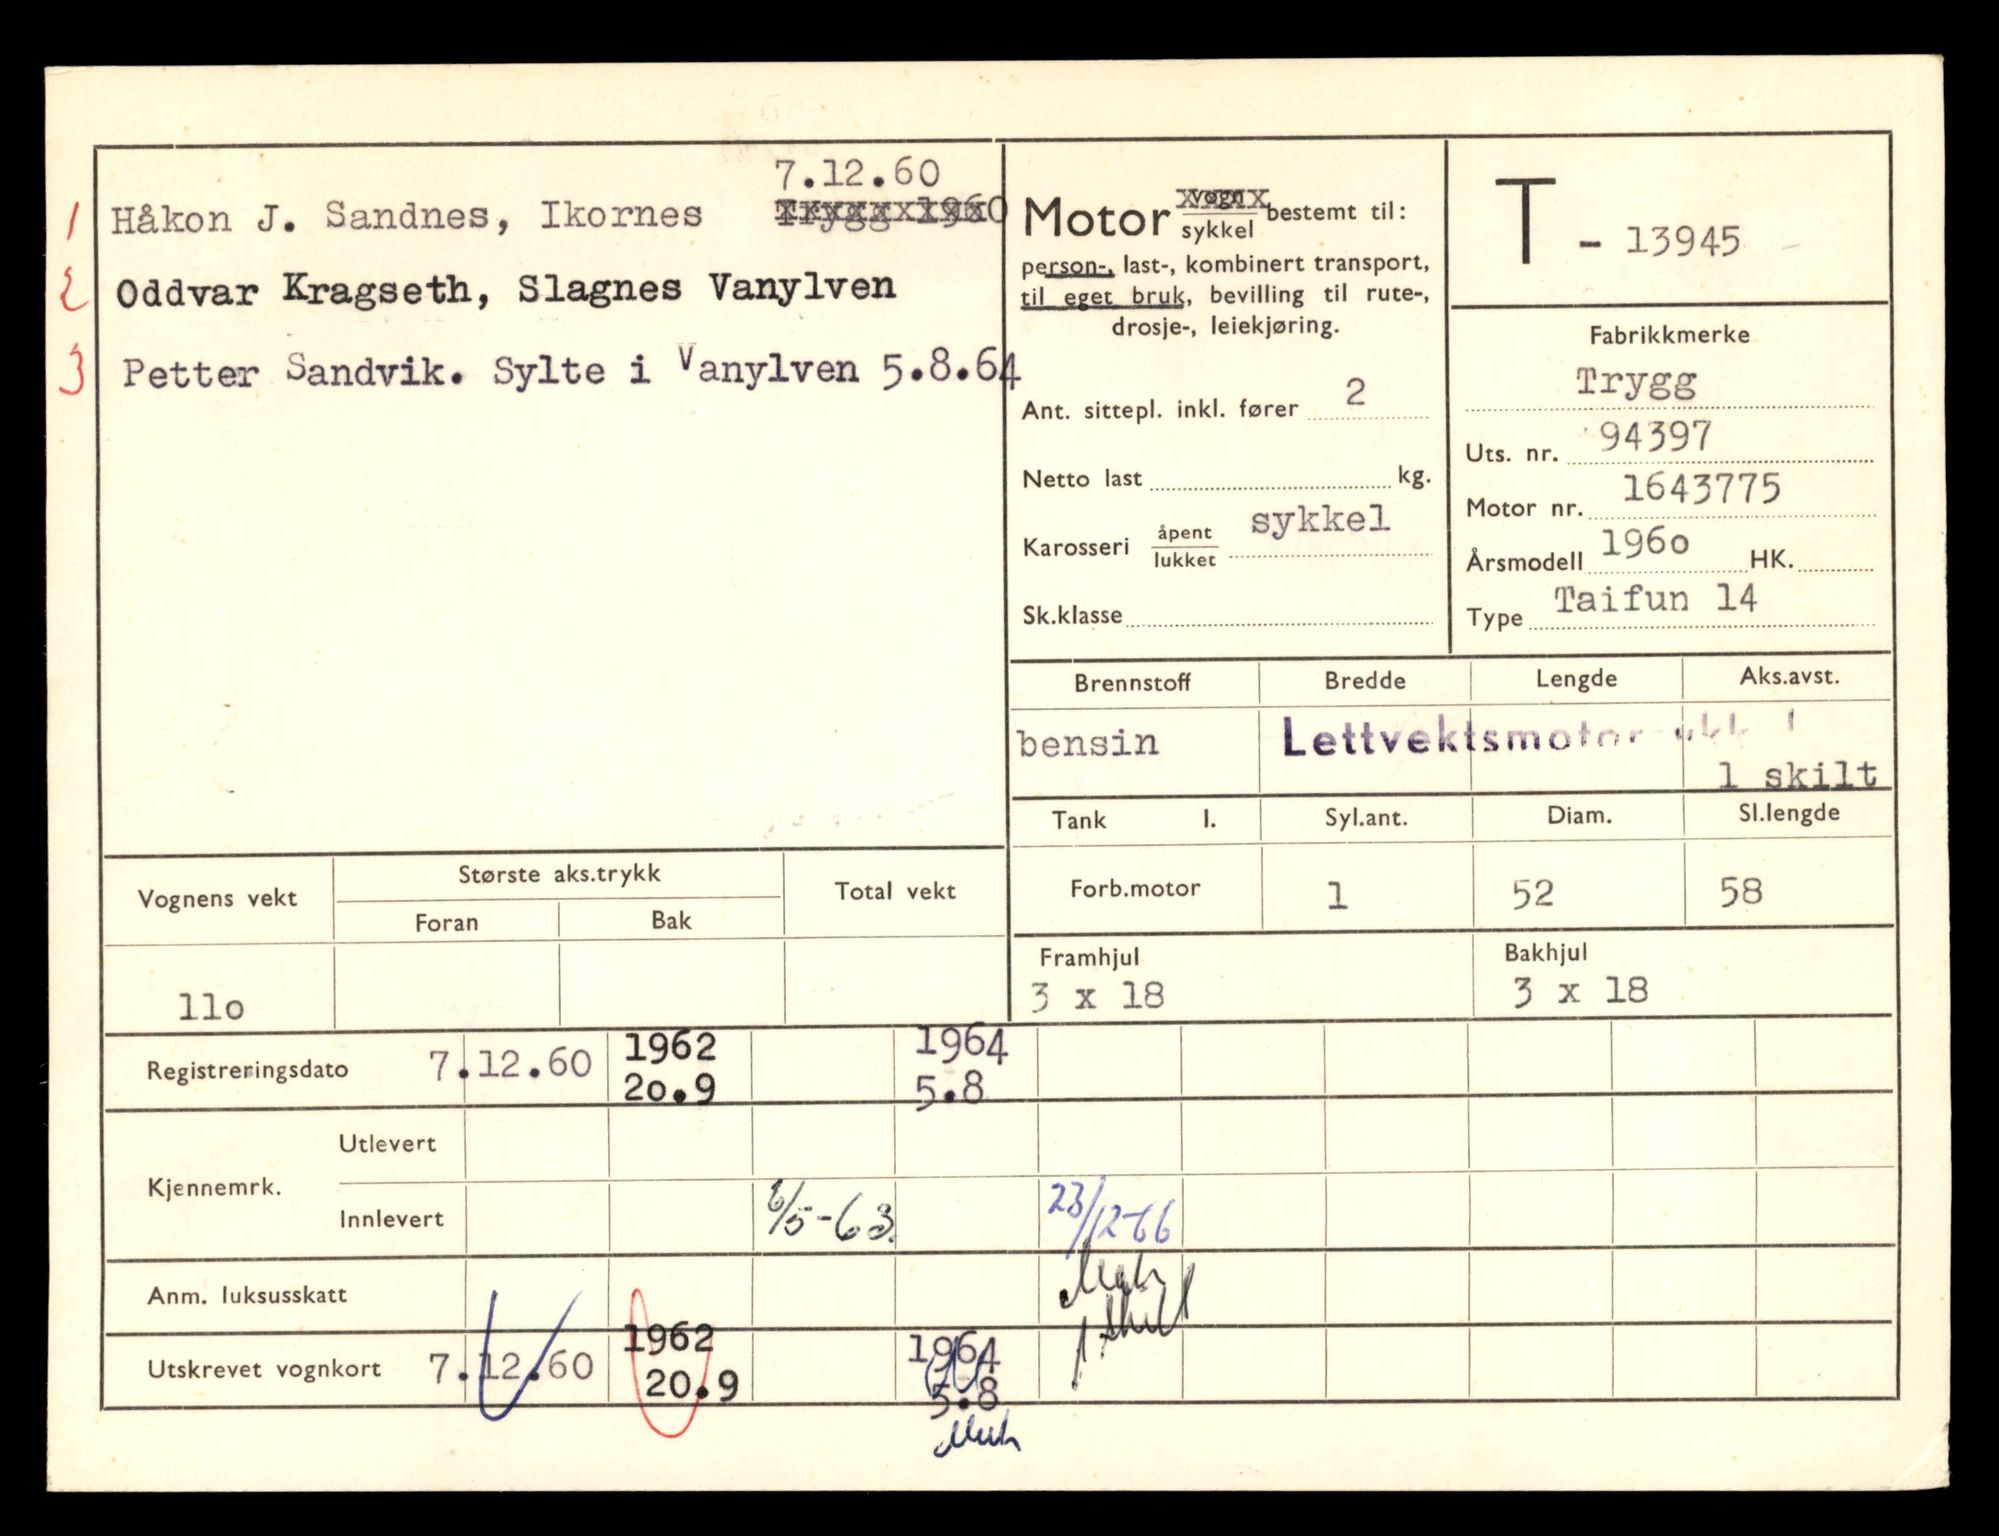 7.12.60
1 Håkon J. Sandnes, Ikornes Trygg 1960
2 Oddvar Kragseth, Slagnes Vanylven
3 Petter Sandvik. Sylte i Vanylven 5.8.64
Motor vogn sykkel bestemt til:
person-, last-, kombinert transport,
til eget bruk, bevilling til rute-,
drosje-, leiekjøring.
Ant. sittepl. inkl. fører 2
Netto last kg.
Karosseri åpent lukket sykkel
Sk.klasse
T - 13945
Fabrikkmerke
Trygg
Uts. nr. 94397
Motor nr. 1643775
Årsmodell 196o HK.
Type Taifun 14
Brennstoff Bredde Lengde Aks.avst.
bensin Lettvektsmotor
1 skilt
Tank l. Syl.ant. Diam. Sl.lengde
Forb.motor 1 52 58
Framhjul Bakhjul
3 x 18 3 x 18
Vognens vekt Største aks.trykk Total vekt
Foran Bak
11o
Registreringsdato 7.12.60 1962 1964
2o.9 5.8
Kjennemrk. Utlevert
Innlevert 6/5-63. 23/12-66
Anm. luksusskatt
Utskrevet vognkort 7.12.60 1962 1964
20.9 5.8